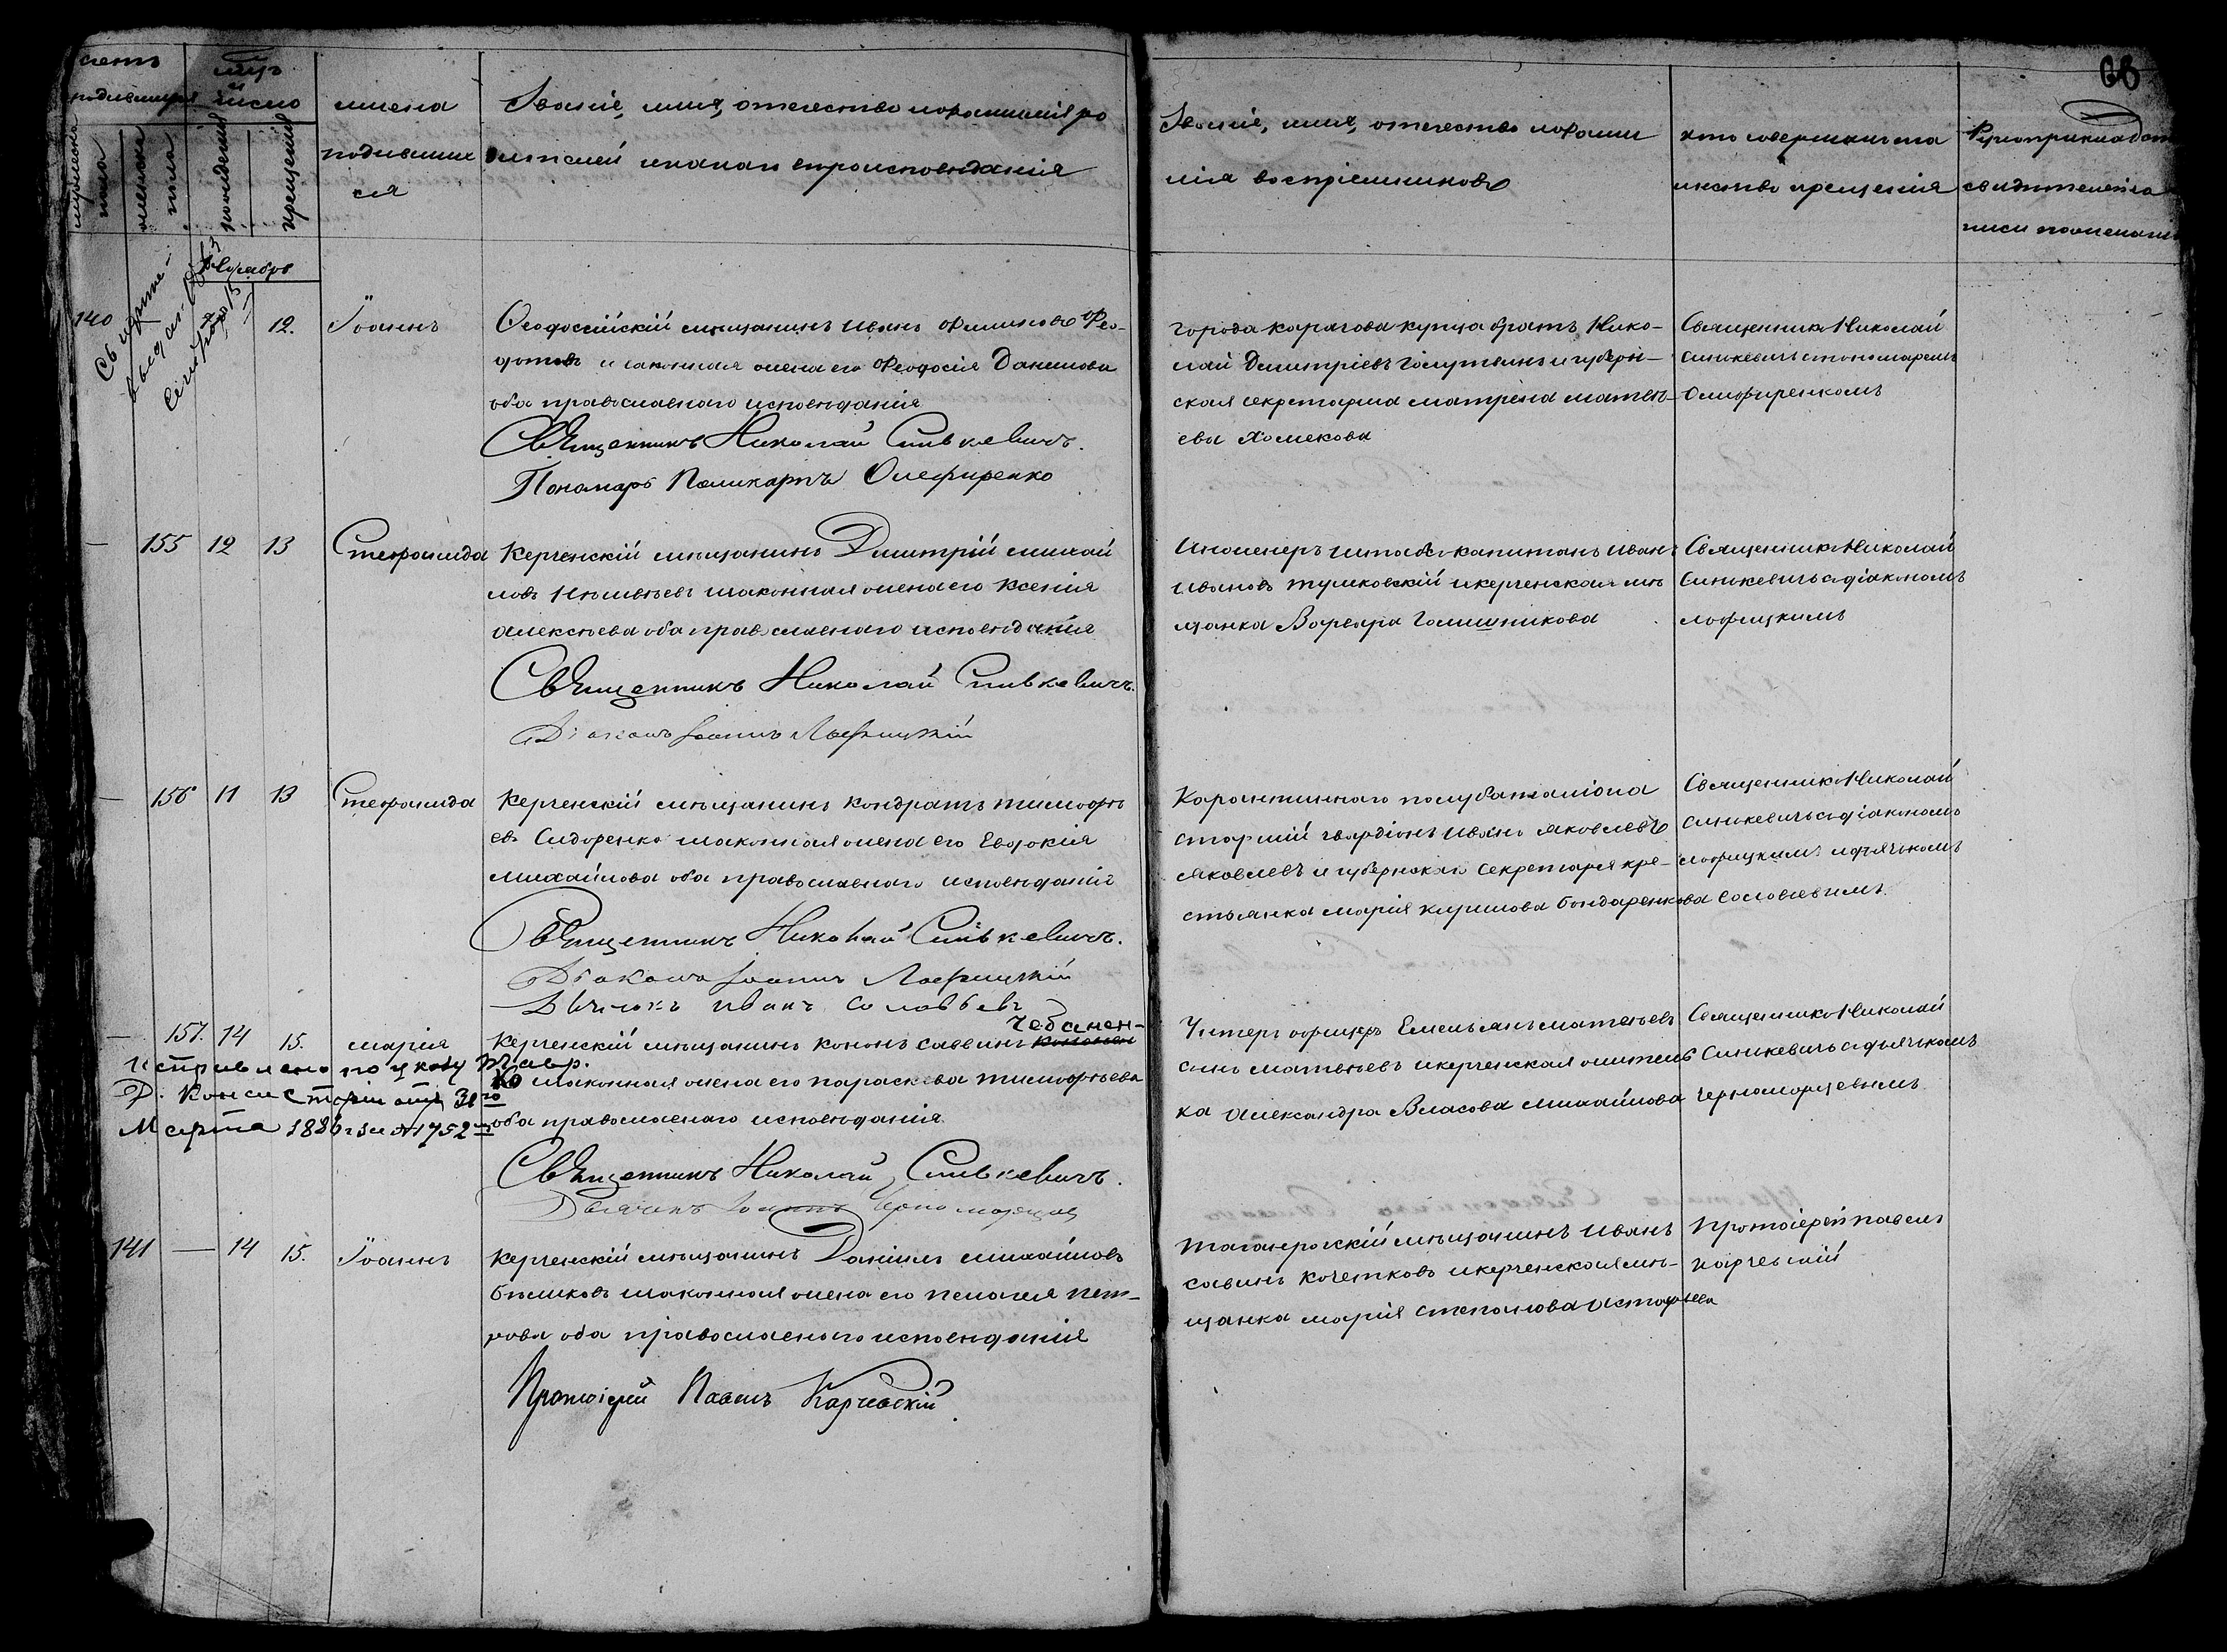 68
счетъ родившихся
мужеска пола
женска пола
мцъ и число
рожденія
крещенія
имена
родивших
ся
Званіе, имя, отечество и фамилія ро
дителей и какаго вѣроисповѣданія
Званіе, имя, отечество и фами
лія воспріемниковъ
кто совершилъ та
инство крещенія
Рукоприкладст
свидѣтелей за
писи по желанію
140
12.
Іоаннъ
Ѳеодосійскій мѣщанинъ Иванъ Филиповъ Фео-
дотовъ и законная жена его Феодосія Данилова
оба православнаго исповѣданія
Священникъ Николай Синькевичъ.
Пономарь Поликарпъ Олефиренко
города купца братъ Нико-
лай Димитріевъ и губерн-
ская секретарша матрена матвѣ-
ева Хомекова
Священникъ Николай
Синькевичъ с пономаремъ
Олефиренкомъ
— 155 12 13
Стефанида
Керченскій мѣщанинъ Димитрій михай
ловъ и законная жена его Ксенія
алексѣева оба православнаго исповѣданія
Священникъ Николай Синькевичъ.
Діаконъ Іоаннъ Лофицкій
Инженеръ штабс-капитанъ Иванъ
Ивановъ тушковскій и керченская мѣ
щанка Варвара Голишникова
Священникъ Николай
Синькевичъ с діакономъ
лофицкимъ
— 156 11 13
Стефанида
Керченскій мѣщанинъ Кондратъ тимофѣ
евъ Сидоренко и законная жена его Евдокія
михайлова оба православнаго исповѣданія
Священникъ Николай Синькевичъ.
Діаконъ Іоаннъ Лофицкій
Дьячокъ Иванъ Соловьевъ
Карантиннаго полубаталіона
старшій гвардіонъ Иванъ яковлевъ
яковлевъ и губернскаго секретаря кре-
стьянка марія кирилова бондаренкова
Священникъ Николай
Синькевичъ с діакономъ
лофицкимъ и дьячкомъ
Соловьевымъ.
— 157. 14 15.
марія
Чебанен-
Керченскій мѣщанинъ кононъ саввинъ
ко и законная жена его параскева тимофѣева
оба православнаго исповѣданія.
Исправлено по указу Тавр.
Д. Консисторіи отъ 31го
Марта 1886 г за № 1752
Священникъ Николай Синькевичъ.
Дьячекъ Іоаннъ Черноморцевъ
Унтеръ офицеръ Емельянъ матвѣевъ
сынъ матвѣевъ и керченская жительни
ка Александра Власова михайлова
Священникъ Николай
Синькевичъ с дьячкомъ
Черноморцевымъ
141 — 14 15.
Іоаннъ
Керченскій мѣщанинъ Даніилъ михайловъ
бѣликовъ и законная жена его пелагея пет-
рова оба православнаго исповѣданія
Протоіерей Павелъ Карчевскій
таганрогскій мѣщанинъ Иванъ
савинъ кочетковъ и керченская мѣ-
щанка марія степанова Астафьева
Протоіерей павелъ
карчевскій